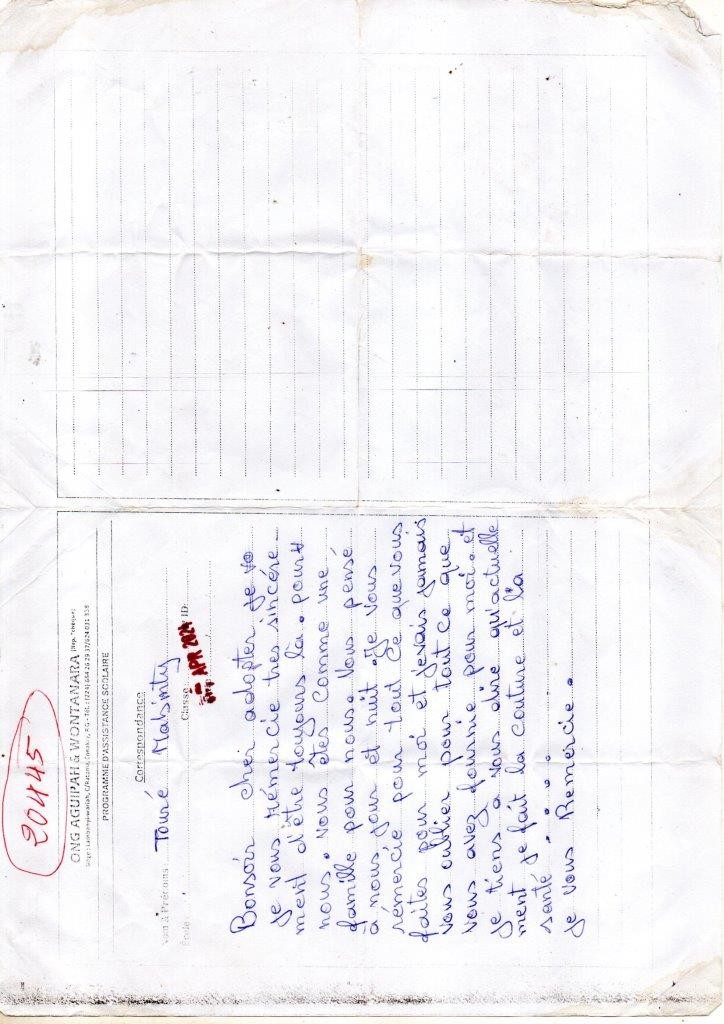 20445
ONG AGUIPAH & WONTANARA (Rep. Tchèque)
PROGRAMME D'ASSISTANCE SCOLAIRE
Correspondance
Nom & Prénoms: Touré Mabinty
École Classe ID:
APR 2024
Bonsoir cher adopter je vo
je vous rémercie tres sincére-
ment d'être toujours là. pour
nous. vous êtes comme une
famille pour nous. Vous pensé
à nous jour et nuit. Je vous
rémercie pour tout ce que vous
faites pour moi et jevais jamais
vous oublier pour tout ce que
vous avez fournie pour moi. et
je tiens a vous dire qu'actuelle
ment je fait la couture et la
santé. . . .
je vous Remercie.